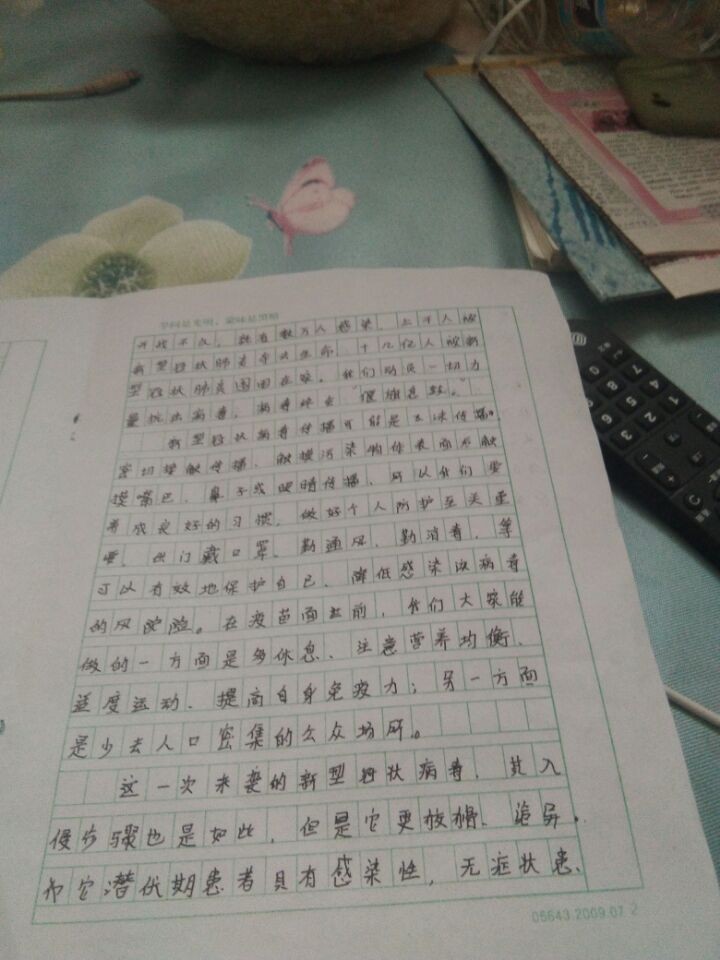 学问是光明，蒙昧是黑暗
开战不久，就有数万人感染，上千人被
新型冠状肺炎夺去生命，十几亿人被新
型冠状肺炎围困在家。我们动员一切力
量抗击病毒，病毒终会“偃旗息鼓。”
新型冠状病毒传播可能是飞沫传播，
密切接触传播，触摸污染物体表面不触
摸嘴巴、鼻子或眼睛传播，所以我们要
养成良好的习惯，做好个人防护至关重
要，出门戴口罩、勤通风、勤消毒，等
可以有效地保护自己，降低感染该病毒
的风险。在疫苗面世前，我们大家能
做的一方面是多休息、注意营养均衡、
适度运动、提高自身免疫力；另一方面
是少去人口密集的公众场所。
这一次来袭的新型冠状病毒，其入
侵步骤也是如此，但是它更狡猾、诡异。
如它潜伏期患者具有感染性，无症状患
05643.2009.07 2